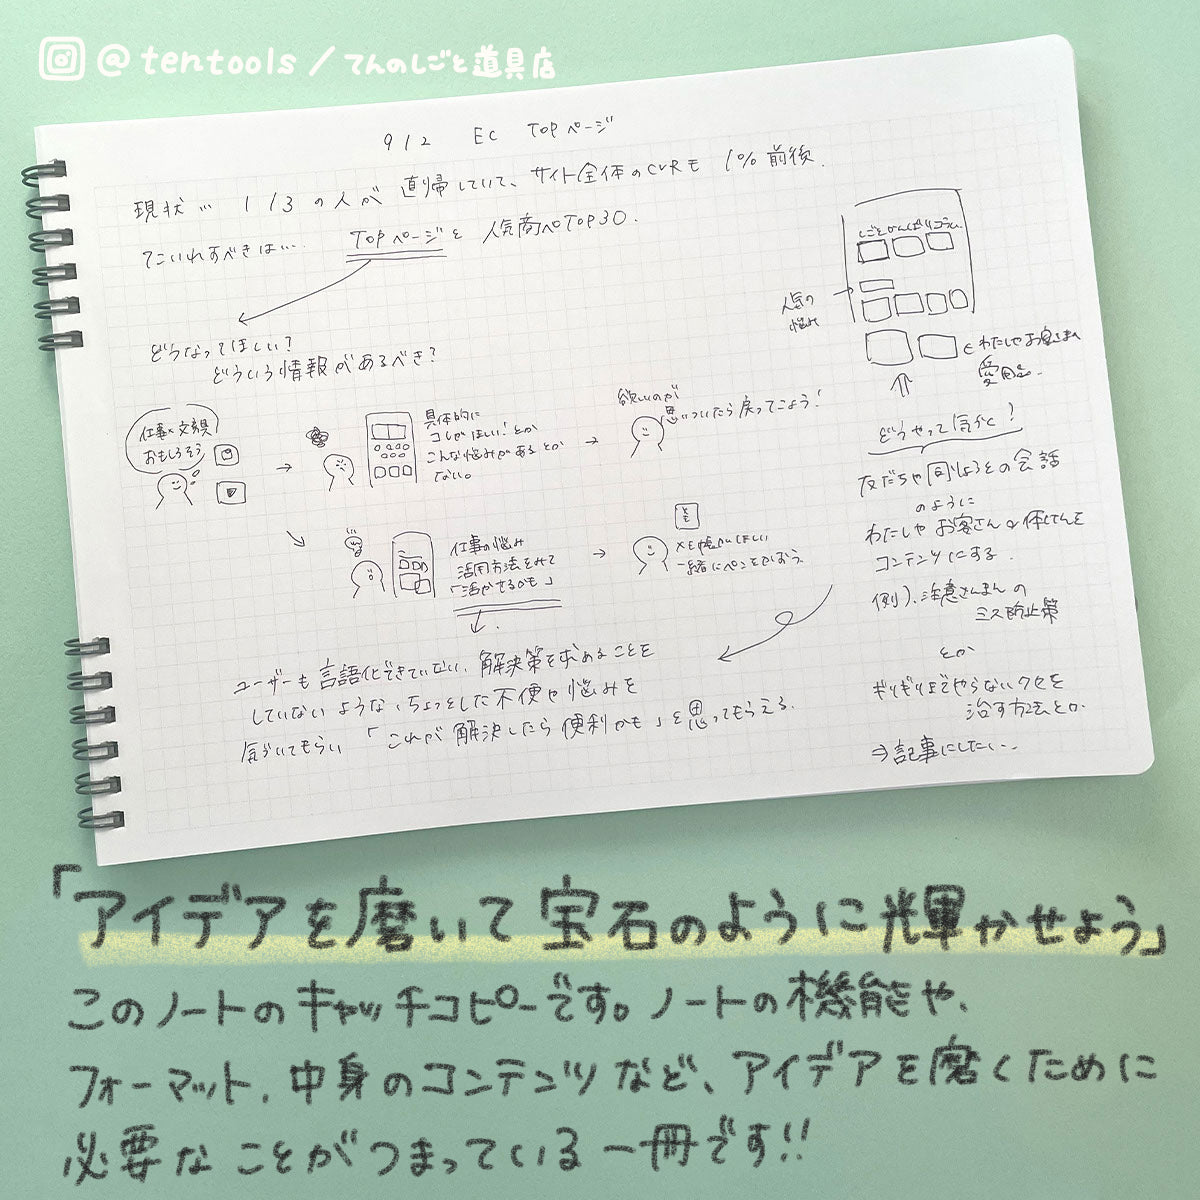 @tentools/てんのしごと道具店
9/2 EC TOPページ
現状… 1/3の人が直帰していて、サイト全体のCVRも1%前後.
てこいれすべきは… TOPページと人気商品TOP30.
どうなってほしい?
どういう情報があるべき?
仕事×文房具
おもしろそう
具体的に
コレがほしい!とか
こんな悩みがあるとか
ない。
欲しいのが
思いついたら戻ってこよう!
仕事の悩み
活用方法をみて
「活かせるかも」
一緒にペンもかおう.
ユーザーも言語化できていない、解決策を求めることを
していないような、ちょっとした不便や悩みを
気づいてもらい「これが解決したら便利かも」と思ってもらえる.
しごとがんばりコラム
人気の
悩み
←わたしやお客さま
愛用品.
どうやって気づく!
友だちや同りょうとの会話
のように
わたしやお客さんの体けんを
コンテンツにする.
例).注意さんまんの
ミス防止策
とか
ギリギリまでやらないクセを
治す方法とか.
⇒記事にしたい…
「アイデアを磨いて宝石のように輝かせよう」
このノートのキャッチコピーです。ノートの機能や、
フォーマット、中身のコンテンツなど、アイデアを磨くために
必要なことがつまっている一冊です!!